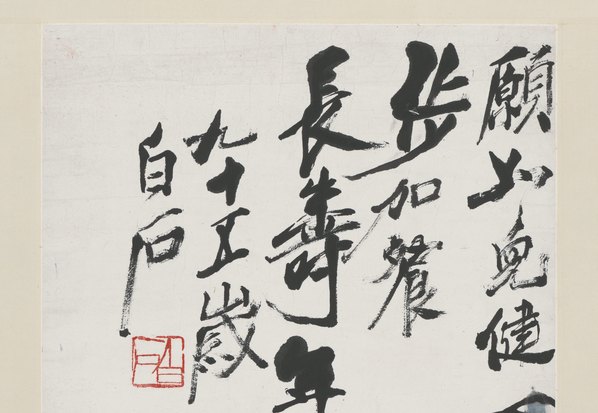 願如健
步加餐
長壽年
九十五歲
白石
白石